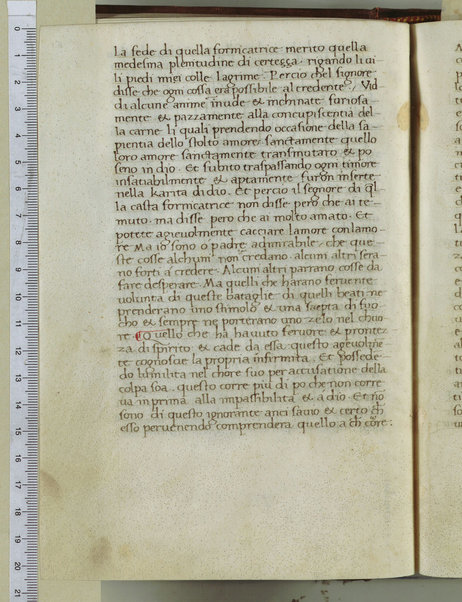 la fede di quella fornicatrice merito quella
medesima plenitudine di certeza · rigando li ui-
li piedi miei colle lagrime · Percio chel signore
disse che ogni cossa era possibile al credente / Vid-
di alcune anime inude & inchinate furiosa-
mente & pazzamente alla concupiscentia del-
la carne li quali prendendo occasione della sa-
pientia dello stolto amore sanctamente quello
loro amore sanctamente transmutaro & po-
seno in dio · Et subito traspassando ogni timore
insatiabilmente & aptamente furon inserte
nella karita di dio · Et percio il segnore di q̄l
la casta fornicatrice non disse pero che ai te-
muto · ma disse pero che ai molto amato · Et
potete agieuolmente cacciare lamore con lamo-
re Ma io sono o padre admirabile · che que-
ste cosse alchuni non credano · alcuni altri sera-
no forti a credere · Alcuni altri parrano cosse da
fare desperare · Ma quelli che harano feruente
uolunta di queste bataglie di quelli beati ne
prenderano uno stimolo & una saepta di fuo-
cho & sempre ne porterano uno zelo nel chuo-
re · Quello che ha hauuto feruore & pronte-
za di spirito · & cade da essa questo ageuolme-
te cognosce la propria infirmita · Et possede-
do lumilita nel chore suo per accusatione della
colpa soa · questo corre piu di po che non corre-
ua in prima alla impassibilita & a dio · Et nō
sono di questo ignorante anci sauio & certo ch̄
esso peruenendo comprendera quello a ch̄ cōre :